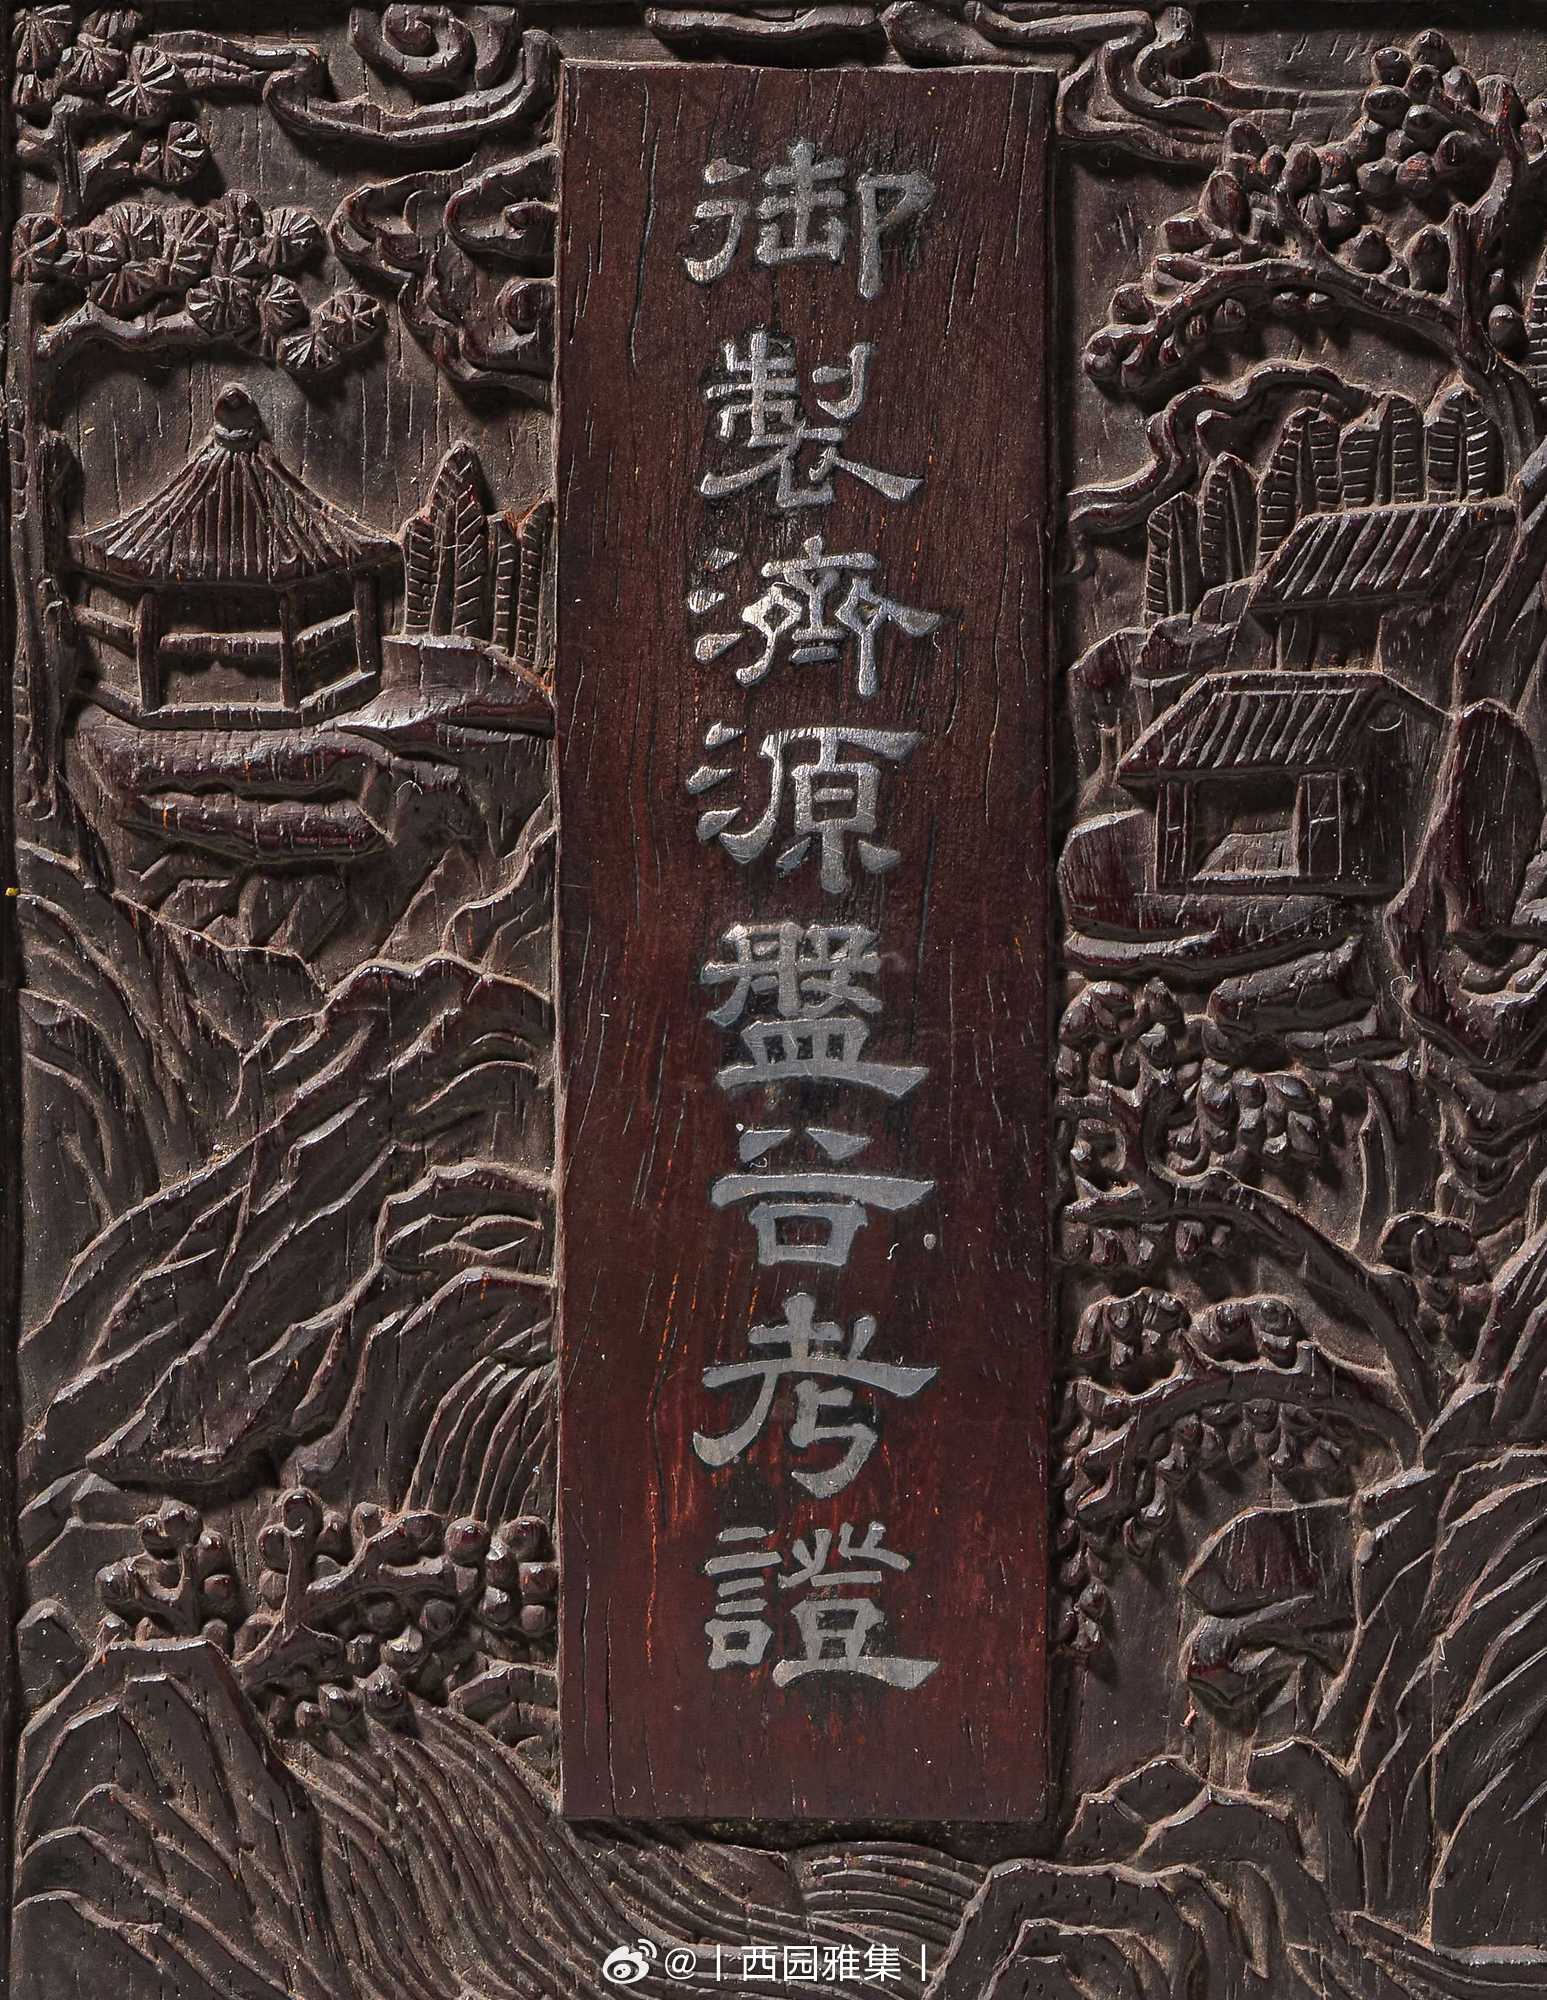 御製濟源盤谷考證
@丨西园雅集丨